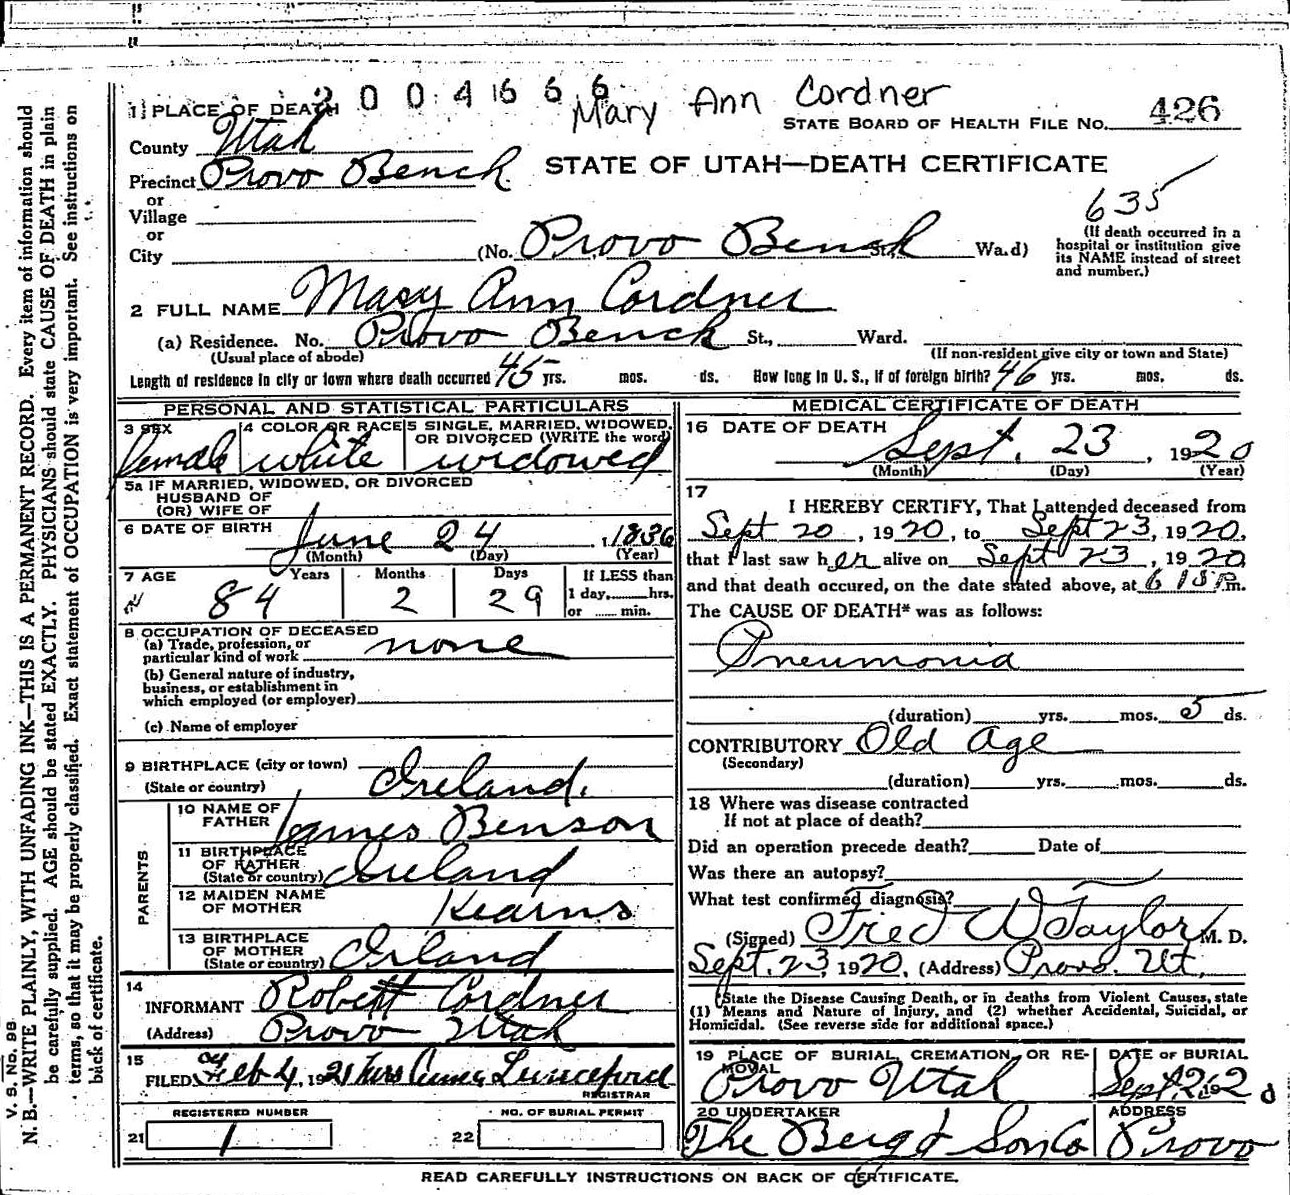 2004666
Mary Ann Cordner
1) PLACE OF DEATH
STATE BOARD OF HEALTH FILE No. 426
County Utah
STATE OF UTAH—DEATH CERTIFICATE
Precinct Provo Bench
or
Village
or
City
635
(No. Provo Bench St., Wa.d)
(If death occurred in a hospital or institution give its NAME instead of street and number.)
2 FULL NAME Mary Ann Cordner
(a) Residence. No. Provo Bench St., Ward.
(Usual place of abode)
(If non-resident give city or town and State)
Length of residence in city or town where death occurred 45 yrs. mos. ds. How long in U. S., if of foreign birth? 46 yrs. mos. ds.
PERSONAL AND STATISTICAL PARTICULARS
3 SEX female
4 COLOR OR RACE white
5 SINGLE, MARRIED, WIDOWED, OR DIVORCED (WRITE the word) widowed
5a IF MARRIED, WIDOWED, OR DIVORCED
HUSBAND OF
(OR) WIFE OF
6 DATE OF BIRTH June 24, 1836
(Month) (Day) (Year)
7 AGE Years Months Days If LESS than
84 2 29 1 day,......hrs.
or ...... min.
8 OCCUPATION OF DECEASED
(a) Trade, profession, or
particular kind of work none
(b) General nature of industry,
business, or establishment in
which employed (or employer)
(c) Name of employer
9 BIRTHPLACE (city or town)
(State or country) Ireland.
PARENTS
10 NAME OF FATHER James Benson
11 BIRTHPLACE OF FATHER (State or country) Ireland
12 MAIDEN NAME OF MOTHER Kearns
13 BIRTHPLACE OF MOTHER (State or country) Irland
14
INFORMANT Robert Cordner
(Address) Provo Utah
15
FILED Feb 4, 1921
REGISTRAR
REGISTERED NUMBER NO. OF BURIAL PERMIT
21 1 22
MEDICAL CERTIFICATE OF DEATH
16 DATE OF DEATH Sept. 23, 1920
(Month) (Day) (Year)
17
I HEREBY CERTIFY, That I attended deceased from
Sept 20, 1920, to Sept 23, 1920,
that I last saw her alive on Sept 23, 1920
and that death occured, on the date stated above, at 6 15 P.m.
The CAUSE OF DEATH* was as follows:
Pneumonia
(duration) yrs. mos. 5 ds.
CONTRIBUTORY Old Age
(Secondary)
(duration) yrs. mos. ds.
18 Where was disease contracted
If not at place of death?
Did an operation precede death? Date of
Was there an autopsy?
What test confirmed diagnosis?
(Signed) Fred W Taylor M. D.
Sept. 23, 1920, (Address) Provo. Ut.
State the Disease Causing Death, or in deaths from Violent Causes, state
(1) Means and Nature of Injury, and (2) whether Accidental, Suicidal, or
Homicidal. (See reverse side for additional space.)
19 PLACE OF BURIAL, CREMATION, OR REMOVAL Provo Utah
DATE OF BURIAL
20 UNDERTAKER The Berg & Son Co
ADDRESS Provo
READ CAREFULLY INSTRUCTIONS ON BACK OF CERTIFICATE.
V. S. No. 98
N. B.—WRITE PLAINLY, WITH UNFADING INK—THIS IS A PERMANENT RECORD. Every item of information should
be carefully supplied. AGE should be stated EXACTLY. PHYSICIANS should state CAUSE OF DEATH in plain
terms, so that it may be properly classified. Exact statement of OCCUPATION is very important. See instructions on
back of certificate.